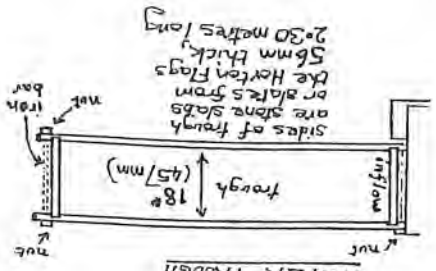 TROUGH
nut
nut
inflow
trough
18"
(457mm)
nut
iron
bar
sides of trough
are stone slabs
or slates from
the Horton Flags
56mm thick,
2·30 metres long